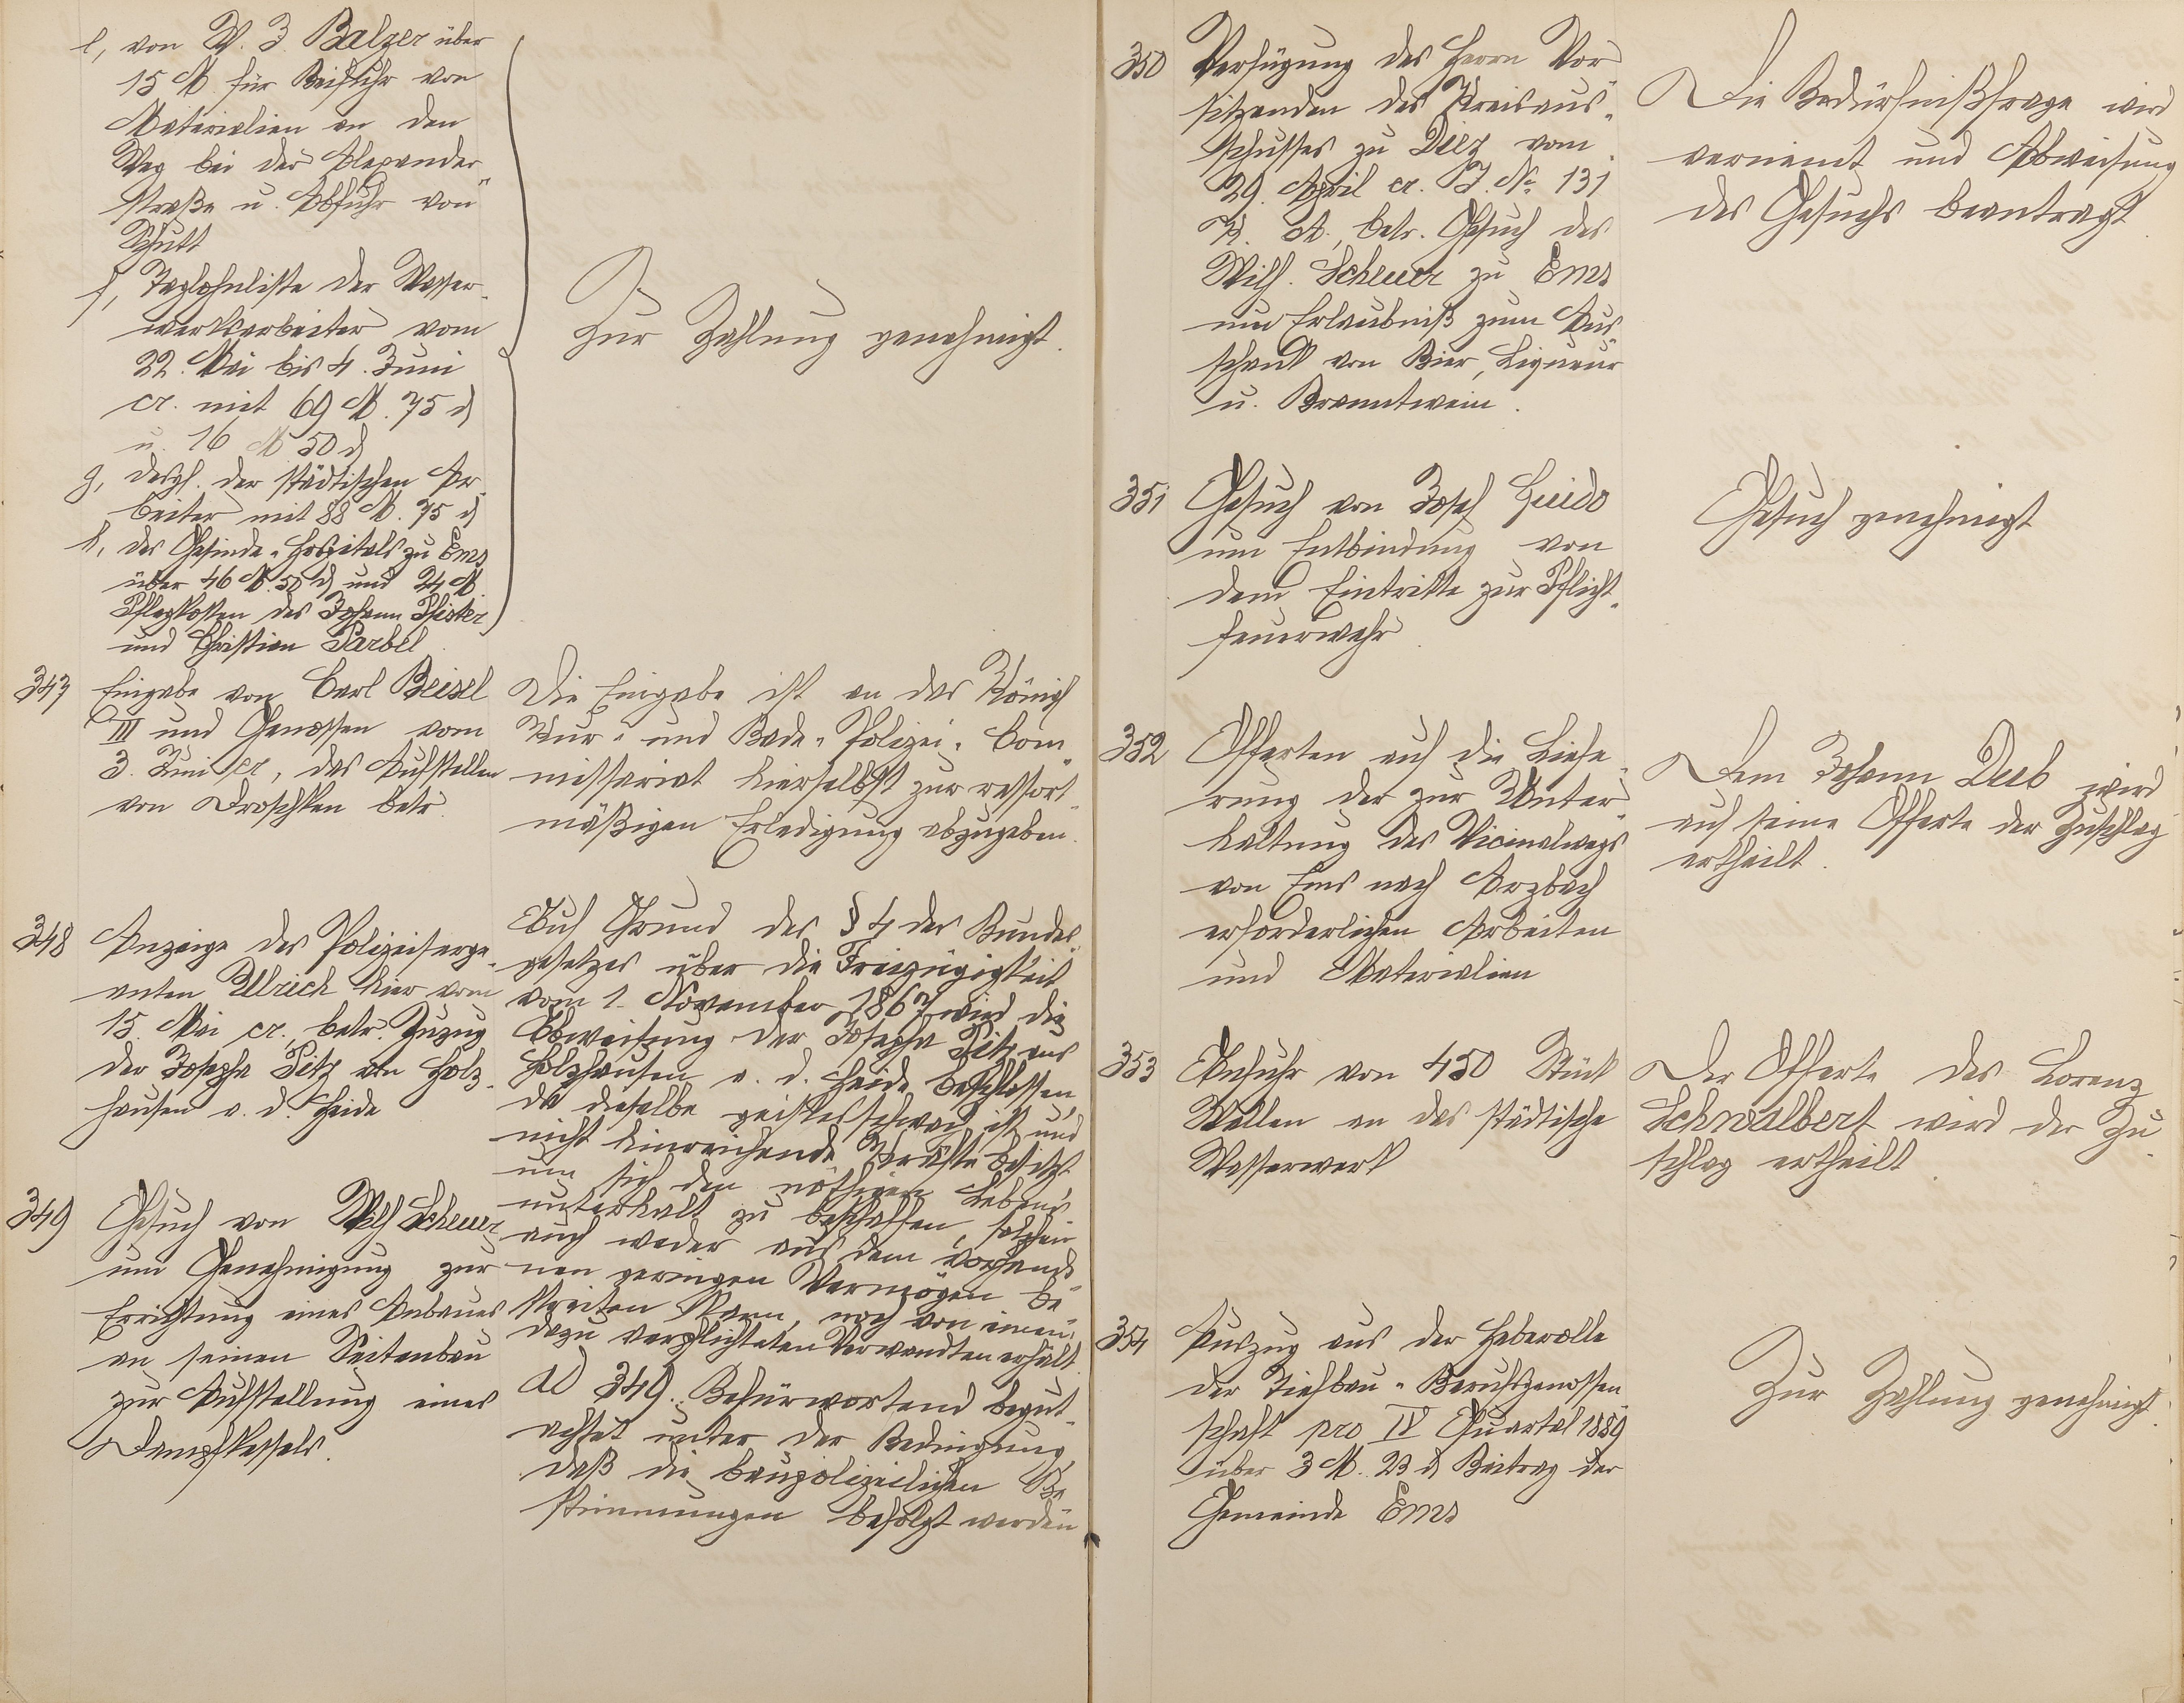 e, von W. J. Balzer über
15 M. für Beifuhr von
Materialien an den
Weg bei der Alexander-
straße u. Abfuhr von
Schutt
f, Taglohnliste der Wasser-
werksarbeiter vom
22. Mai bis 4. Juni
cr. mit 69 M. 75 d
u. 16 M 50 d
g, desgl. der städtischen Ar-
beiter mit 88 M. 75 d
h, des Gesinde-Hospitals zu Ems
über 46 M. 50 d und 24 M
Pflegkosten des Johann Pfister
und Christian Parbel
Zur Zahlung genehmigt.
347 Eingabe von Carl Beisel
III und Genossen vom
3. Juni cr, das Aufstellen
von Droschken betr.
Die Eingabe ist an das Königl
Kur- und Bade-Polizei-Com-
missariat hierselbst zur ressort-
mäßigen Erledigung abzugeben.
348 Anzeige des Polizeiserge-
anten Ullrich hier vom
15. Mai cr., betr. Zuzug
der Josepha Pitz von Holz-
hausen a. d. Heide
Auf Grund des § 4 des Bundes-
gesetzes über die Freizügigkeit
vom 1. November 1867 wird die
Abweisung der Josepha Pitz aus
Holzhausen a. d. Heide beschlossen,
da dieselbe geistesschwach ist und
nicht hinreichende Kräfte besitzt
um sich den nöthigen Lebens-
unterhalt zu beschaffen, solchen
auch weder aus dem vorhande-
nen geringen Vermögen be-
streiten kann, noch von einem
dazu verpflichteten Verwandten erhält.
349 Gesuch von Wilh Scheuer
um Genehmigung zur
Errichtung eines Anbaues
an seinen Seitenbau
zur Aufstellung eines
Dampfkessels.
ad 349. Befürwortend begut-
achtet unter der Bedingung,
daß die baupolizeilichen Be-
stimmungen befolgt werden
350 Verfügung des Herrn Vor-
sitzenden des Kreisaus-
schusses zu Diez vom
29. April cr. J. No 131
K. A., betr. Gesuch des
Wilh. Scheuer zu Ems
um Erlaubniß zum Aus-
schank von Bier, Liqueur
u. Branntwein.
Die Bedürfnißfrage wird
verneint und Abweisung
des Gesuchs beantragt.
351 Gesuch von Josef Guido
um Entbindung von
dem Eintritte zur Pflicht-
feuerwehr
Gesuch genehmigt
352 Offerten auf die Liefe-
rung der zur Unter-
haltung des Vicinalwegs
von Ems nach Arzbach
erforderlichen Arbeiten
und Materialien
Dem Johann Deeb wird
auf seine Offerte der Zuschlag
ertheilt.
353 Anfuhr von 450 Stück
Wellen an das städtische
Wasserwerk
Der Offerte des Lorenz
Schwalbert wird der Zu-
schlag ertheilt.
354 Auszug aus der Heberolle
der Tiefbau-Berufsgenossen-
schaft pro IV Quartal 1889
über 3 M. 23 d Beitrag der
Gemeinde Ems
Zur Zahlung genehmigt.